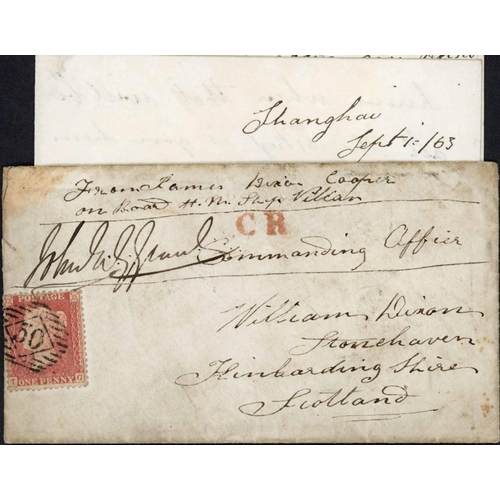 Shanghai
Sept 1 /63
From James Dixon Cooper
on Board H. M. Ship Vulcan
CR
Commanding Officer
William Dixon
Stonehaven
Kinbarding Shire
Scotland
POSTAGE
ONE PENNY